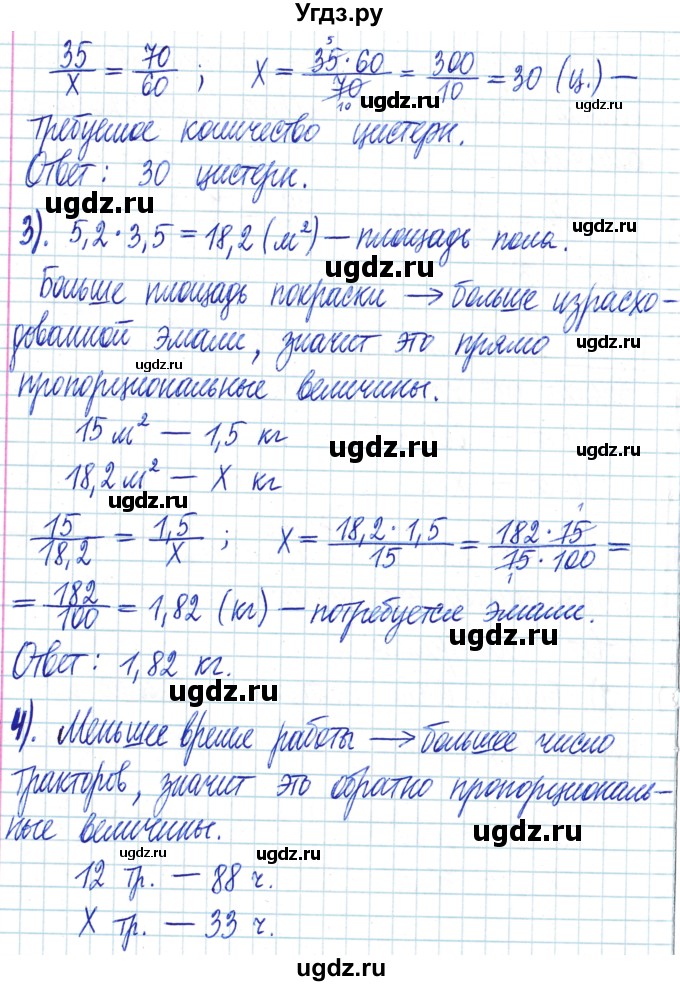 Угдз.ру
35/x = 70/60 ; x = 35·60/70 = 300/10 = 30 (ц.) —
5
10
ugdz.ru
ugdz.ru
требуемое количество цистерн.
Ответ: 30 цистерн.
ugdz.ru
ugdz.ru
3). 5,2·3,5 = 18,2 (м²) — площадь пола.
ugdz.ru
Больше площадь покраски → больше израсхо-
дованной эмали, значит это прямо
ugdz.ru
ugdz.ru
пропорциональные величины.
15 м² — 1,5 кг
ugdz.ru
18,2 м² — x кг
ugdz.ru
15/18,2 = 1,5/x ; x = 18,2·1,5/15 = 182·15/15·100 =
1
1
= 182/100 = 1,82 (кг) — потребуется эмали.
ugdz.ru
Ответ: 1,82 кг.
ugdz.ru
4). Меньшее время работы → большее число
тракторов, значит это обратно пропорциональ-
ные величины.
ugdz.ru
ugdz.ru
ugdz.ru
12 тр. — 88 ч.
x тр. — 33 ч.
ugdz.ru
ugdz.ru